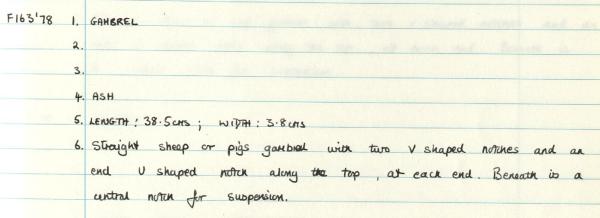 F163'78 1. GAMBREL
2.
3.
4. ASH
5. LENGTH: 38.5cms ; WIDTH: 3.8cms
6. Straight sheep or pigs gambrel with two V shaped notches and an
end U shaped notch along the top, at each end. Beneath is a
central notch for suspension.